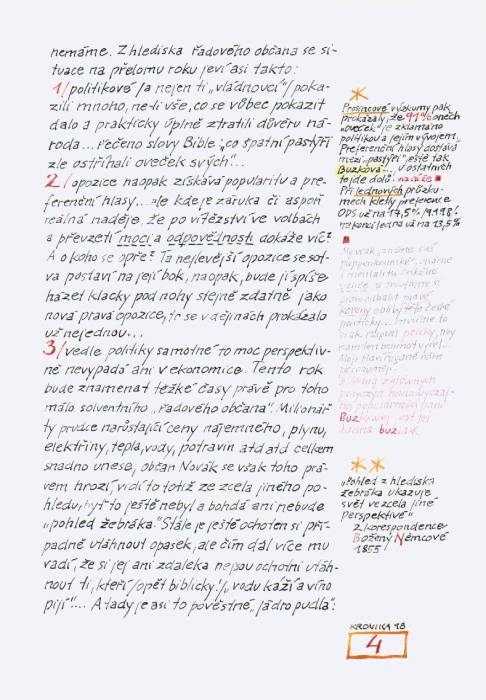 nemáme. Z hlediska řadového občana se si-
tuace na přelomu roku jeví asi takto:
1/ politikové /a nejen ti „vládnoucí"/ poka-
zili mnoho, ne-li vše, co se vůbec pokazit
dalo a prakticky úplně ztratili důvěru ná-
roda... řečeno slovy Bible „co špatní pastýři
zle ostříhali oveček svých"...
2/ opozice naopak získává popularitu a pre-
ferenční hlasy... ale kde je záruka či aspoň
reálná naděje, že po vítězství ve volbách
a převzetí moci a odpovědnosti dokáže víc?
A o koho se opře? Ta nejlevější opozice se sot-
va postaví na její bok, naopak, bude jí spíše
házet klacky pod nohy stejně zdatně jako
nová pravá opozice, ta se v dějinách prokázalo
už nejednou...
3/ vedle politiky samotné to moc perspektiv-
ně nevypadá ani v ekonomice. Tento rok
bude znamenat těžké časy právě pro toho
málo solventního „řadového občana". Milionář
ty prudce narůstající ceny nájemného, plynu,
elektřiny, tepla, vody, potravin atd atd celkem
snadno unese, občan Novák se však toho prá-
vem hrozí, vidí to totiž ze zcela jiného po-
hledu, byť to ještě nebyl a bohdá ani nebude
„pohled žebráka". Stále je ještě ochoten si pří-
padně utáhnout opasek, ale čím dál více mu
vadí, že si jej ani zdaleka nejsou ochotni utáh-
nout ti, kteří /opět biblicky!/ „vodu káží a víno
pijí"... A tady je asi to pověstné „jádro pudla":
Prosincové výzkumy pak
prokázaly, že 91% oněch
„oveček" je zklamáno
politikou a jejím vývojem.
Preferenční hlasy dostává
mezi „pastýři" ještě tak
Buzková... u ostatních
to jde dolů
Při lednových průzku-
mech klesly preference
ODS už na
na konci ledna už na 13,5%
„Pohled z hlediska
žebráka ukazuje
svět ve zcela jiné
perspektivě"
Z korespondence
Boženy Němcové
1855
KRONIKA 98
4